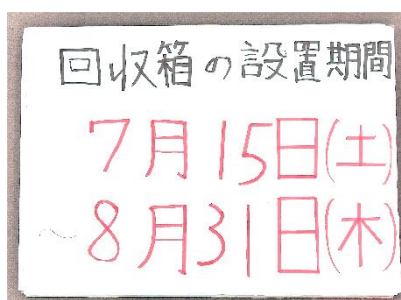 回収箱の設置期間
7月15日(土)
～8月31日(木)